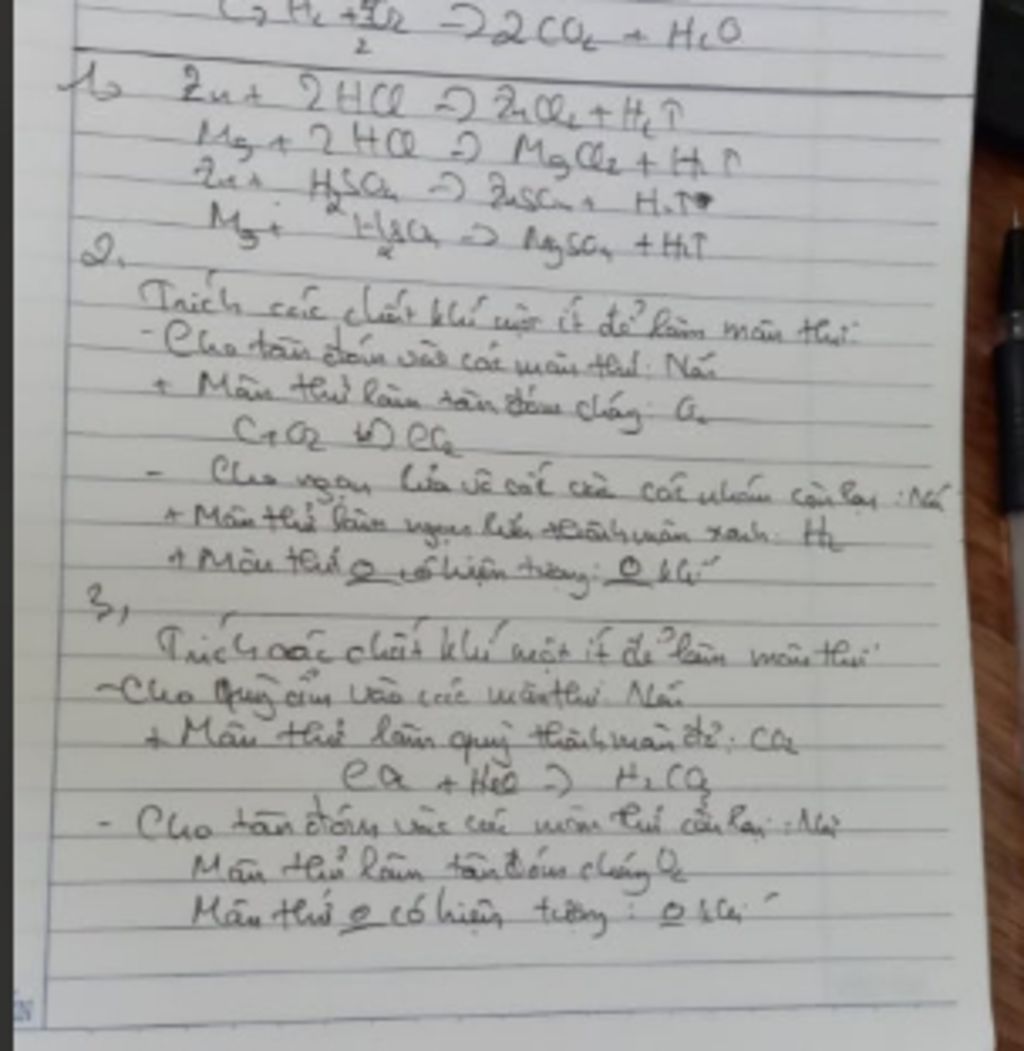 C₂H₂ + 5/2 O₂ => 2CO₂ + H₂O
1,
Zn + 2HCl => ZnCl₂ + H₂↑
Mg + 2HCl => MgCl₂ + H₂↑
Zn + H₂SO₄ => ZnSO₄ + H₂↑
Mg + H₂SO₄ => MgSO₄ + H₂↑
2.
Trích các chất khí một ít để làm mẫu thử:
- Cho tàn đóm vào các mẫu thử: Nếu
+ Mẫu thử làm tàn đóm cháy: O₂
C + O₂ => CO₂
- Cho ngọn lửa các còn lại: Nếu
+ Mẫu thử làm ngọn lửa thành màu xanh: H₂
+ Mẫu thử O có hiện tượng: O khí
3,
Trích các chất khí một ít để làm mẫu thử
- Cho quỳ ẩm vào các mẫu thử: Nếu
+ Mẫu thử làm quỳ thành màu đỏ: CO₂
CO₂ + H₂O => H₂CO₃
- Cho tàn đóm vào các mẫu thử còn lại: Nếu
Mẫu thử làm tàn đóm cháy O₂
Mẫu thử O có hiện tượng: O khí